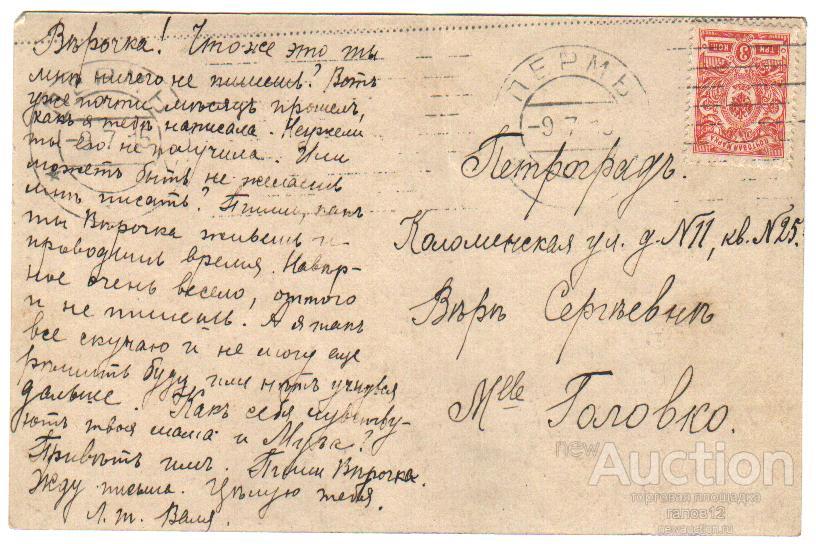 Вѣрочка! Что же это ты
мнѣ ничего не пишешь? Вотъ
уже почти мѣсяцъ прошелъ,
какъ я тебѣ написала. Неужели
ты его не получила. Или
можетъ быть не желаешь
мнѣ писать? Пиши, какъ
ты Вѣрочка живешь и
проводишь время. Навѣр-
ное очень весело, оттого
и не пишешь. А я такъ
все скучаю и не могу еще
рѣшить буду или нѣтъ учиться
дальше. Какъ себя чувству-
ютъ твоя мама и Муза?
Привѣтъ имъ. Пиши Вѣрочка.
Жду письма. Цѣлую тебя.
Л. т. Валя.
ПЕРМЬ
-9 7
Петроградъ.
Коломенская ул. д. N11, кв. N25.
Вѣрѣ Сергѣевнѣ
Mlle Головко.
3
newAuction
торговая площадка
ганов12
newauction.ru